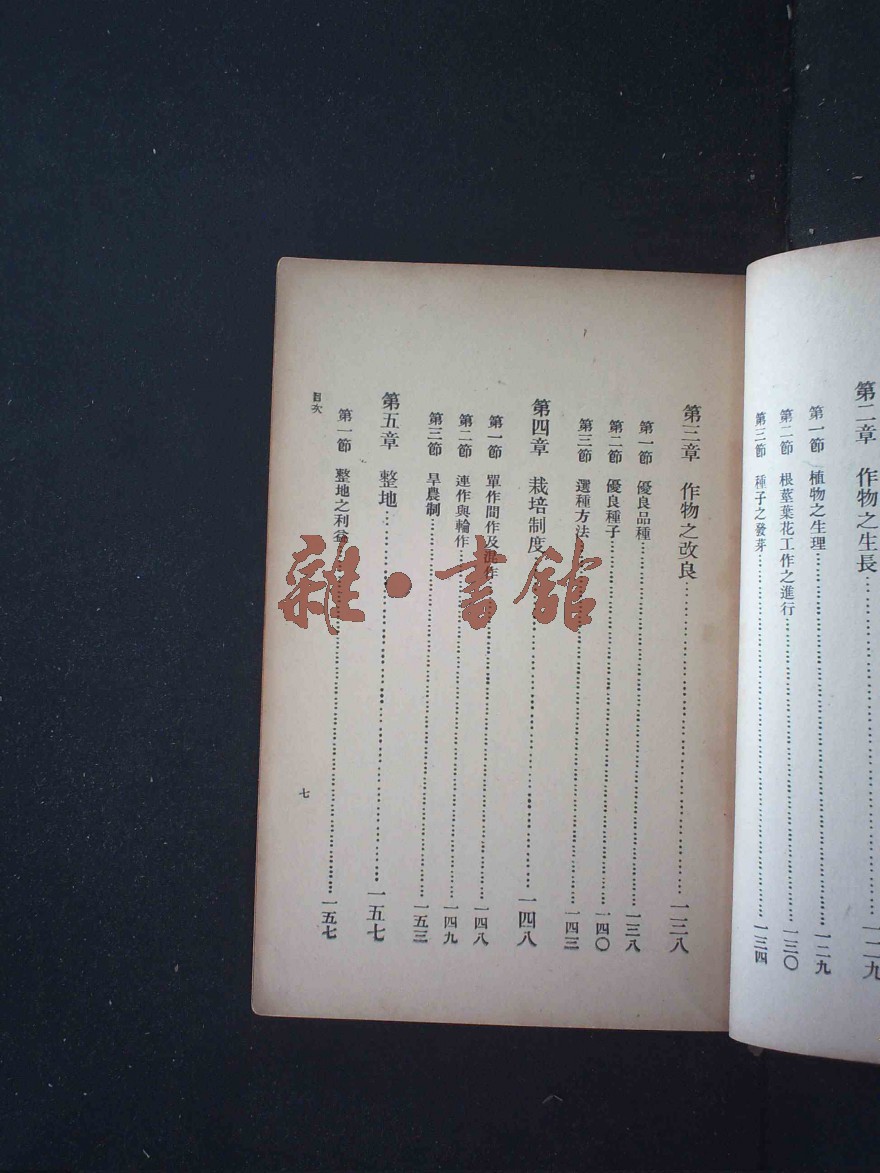 第二章　作物之生長……一二九
第一節　植物之生理……一二九
第二節　根莖葉花工作之進行……一三〇
第三節　種子之發芽……一三四
第三章　作物之改良……一三八
第一節　優良品種……一三八
第二節　優良種子……一四〇
第三節　選種方法……一四三
第四章　栽培制度……一四八
第一節　單作間作及混作……一四八
第二節　連作與輪作……一四九
第三節　旱農制……一五三
第五章　整地……一五七
第一節　整地之利益……一五七
目次
七
雜·書館